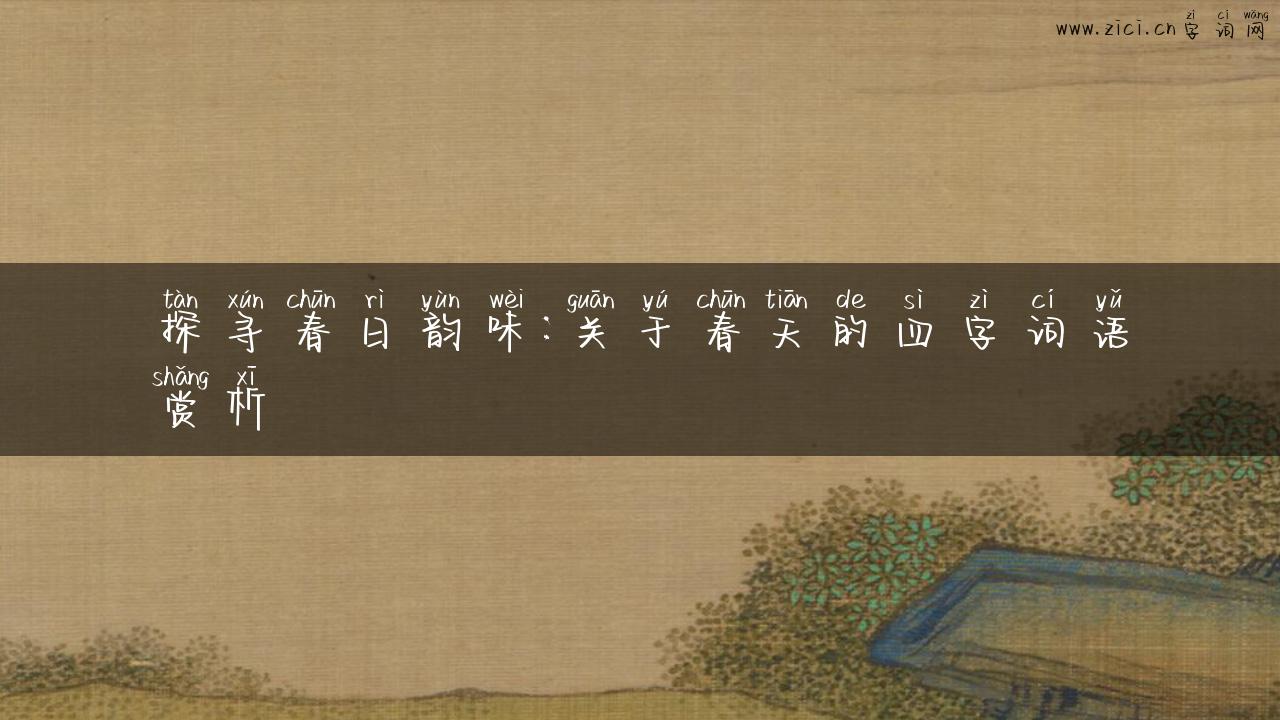 zì cí wǎng
www.zici.cn字词网
tàn xún chūn rì yùn wèi guān yú chūn tiān de sì zì cí yǔ
探寻春日韵味:关于春天的四字词语
shǎng xī
赏析